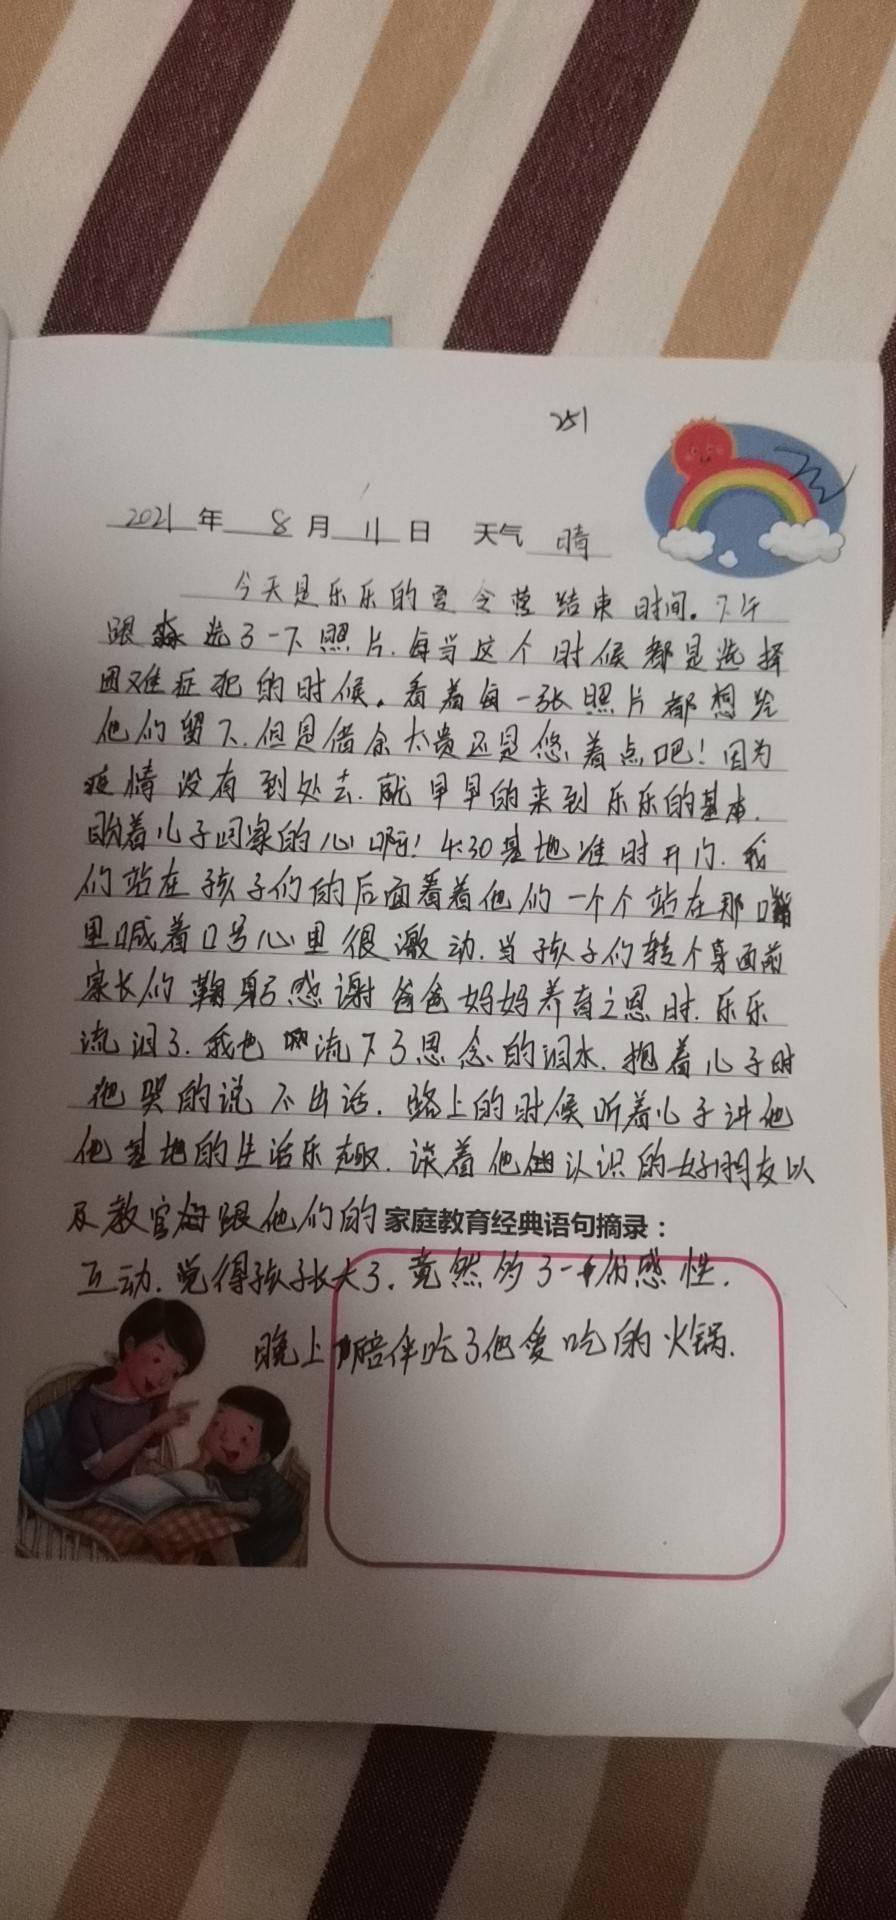 251
2021年 8月11日 天气 晴
今天是乐乐的夏令营结束时间。下午
跟淼选了一下照片.每当这个时候都是选择
困难症犯的时候。看着每一张照片都想给
他们留下.但是借余太贵还是悠着点吧!因为
疫情没有到处去.就早早的来到乐乐的基本.
盼着儿子回家的心啊!4:30基地准时开门.我
们站在孩子们的后面看着他们一个个站在那
里喊着口号心里很激动.当孩子们转个身面前
家长们鞠躬感谢爸爸妈妈养育之恩时.乐乐
流泪了.我也流下了思念的泪水.抱着儿子时
他哭的说不出话.路上的时候听着儿子讲他
他基地的生活乐趣.谈着他认识的好朋友以
及教官每跟他们的
家庭教育经典语句摘录：
互动.觉得孩子长大了.竟然多了一份感性.
晚上陪伴吃了他爱吃的火锅.